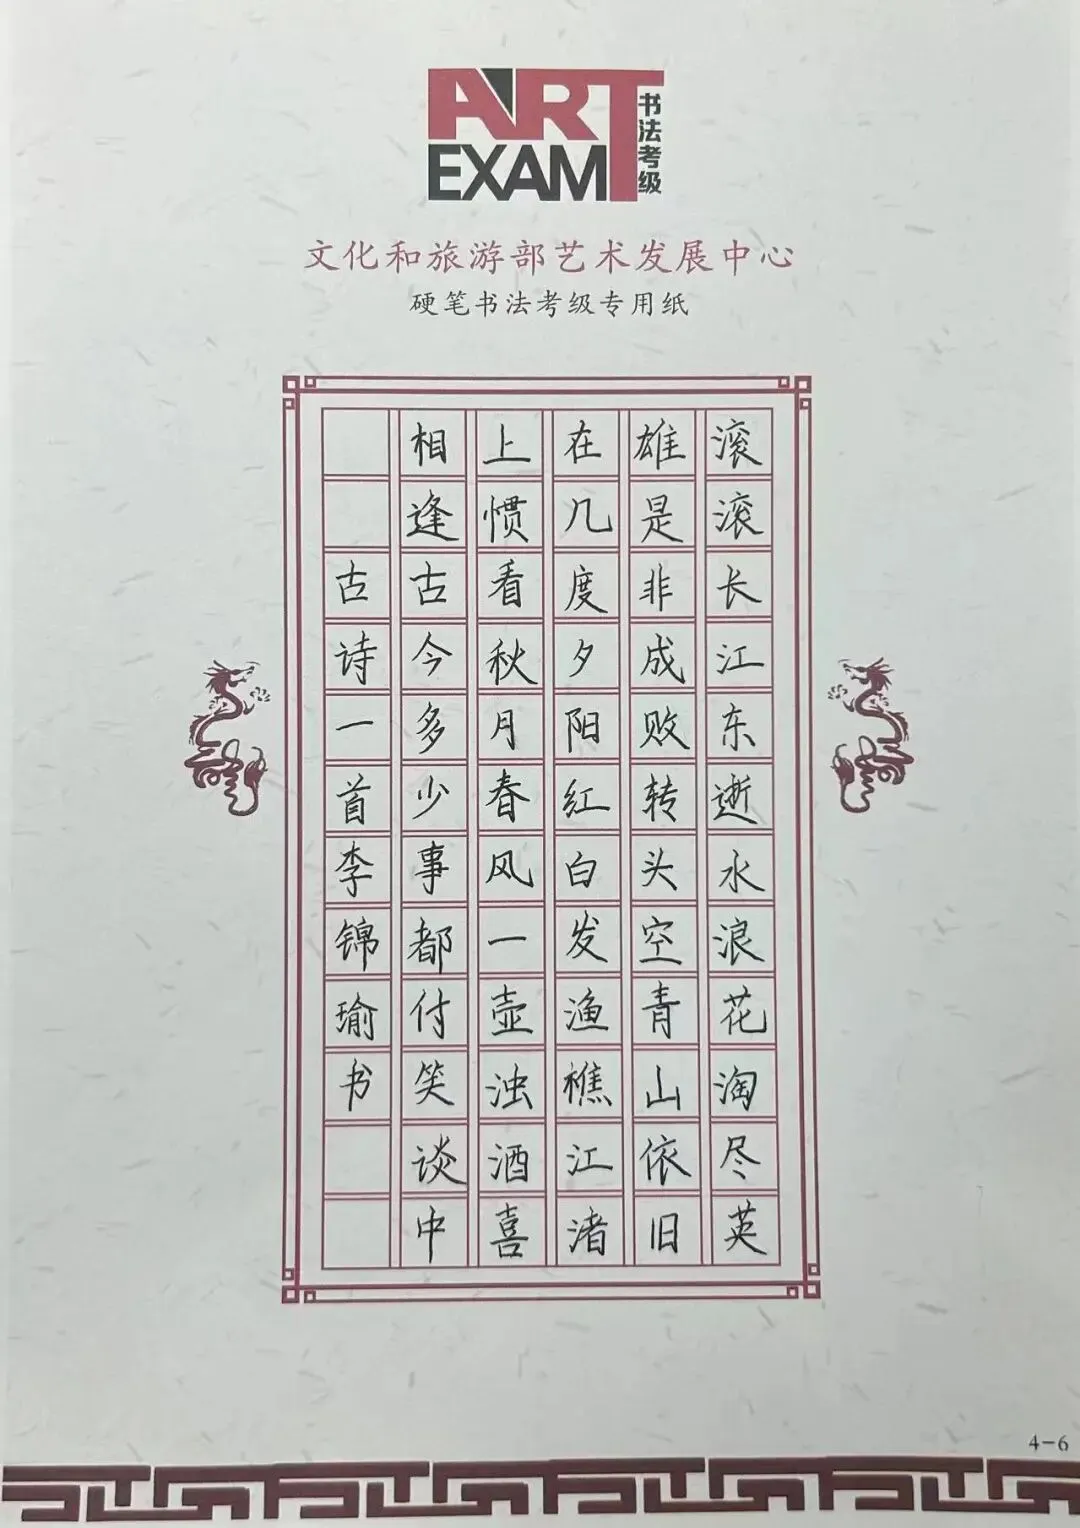 ART
EXAM
书法考级
文化和旅游部艺术发展中心
硬笔书法考级专用纸
滚滚长江东逝水浪花淘尽英
雄是非成败转头空青山依旧
在几度夕阳红白发渔樵江渚
上惯看秋月春风一壶浊酒喜
相逢古今多少事都付笑谈中
古诗一首李锦瑜书
4-6